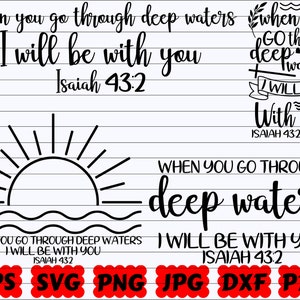 n you go through deep waters
I will be with you
Isaiah 43:2
when
GO th
deep
I WILL
With
ISAIAH 43:2
YOU GO THROUGH DEEP WATERS
I WILL BE WITH YOU
ISAIAH 43:2
WHEN YOU GO THROU
deep wate
I WILL BE WITH Y
ISAIAH 43:2
PS SVG PNG JPG DXF P